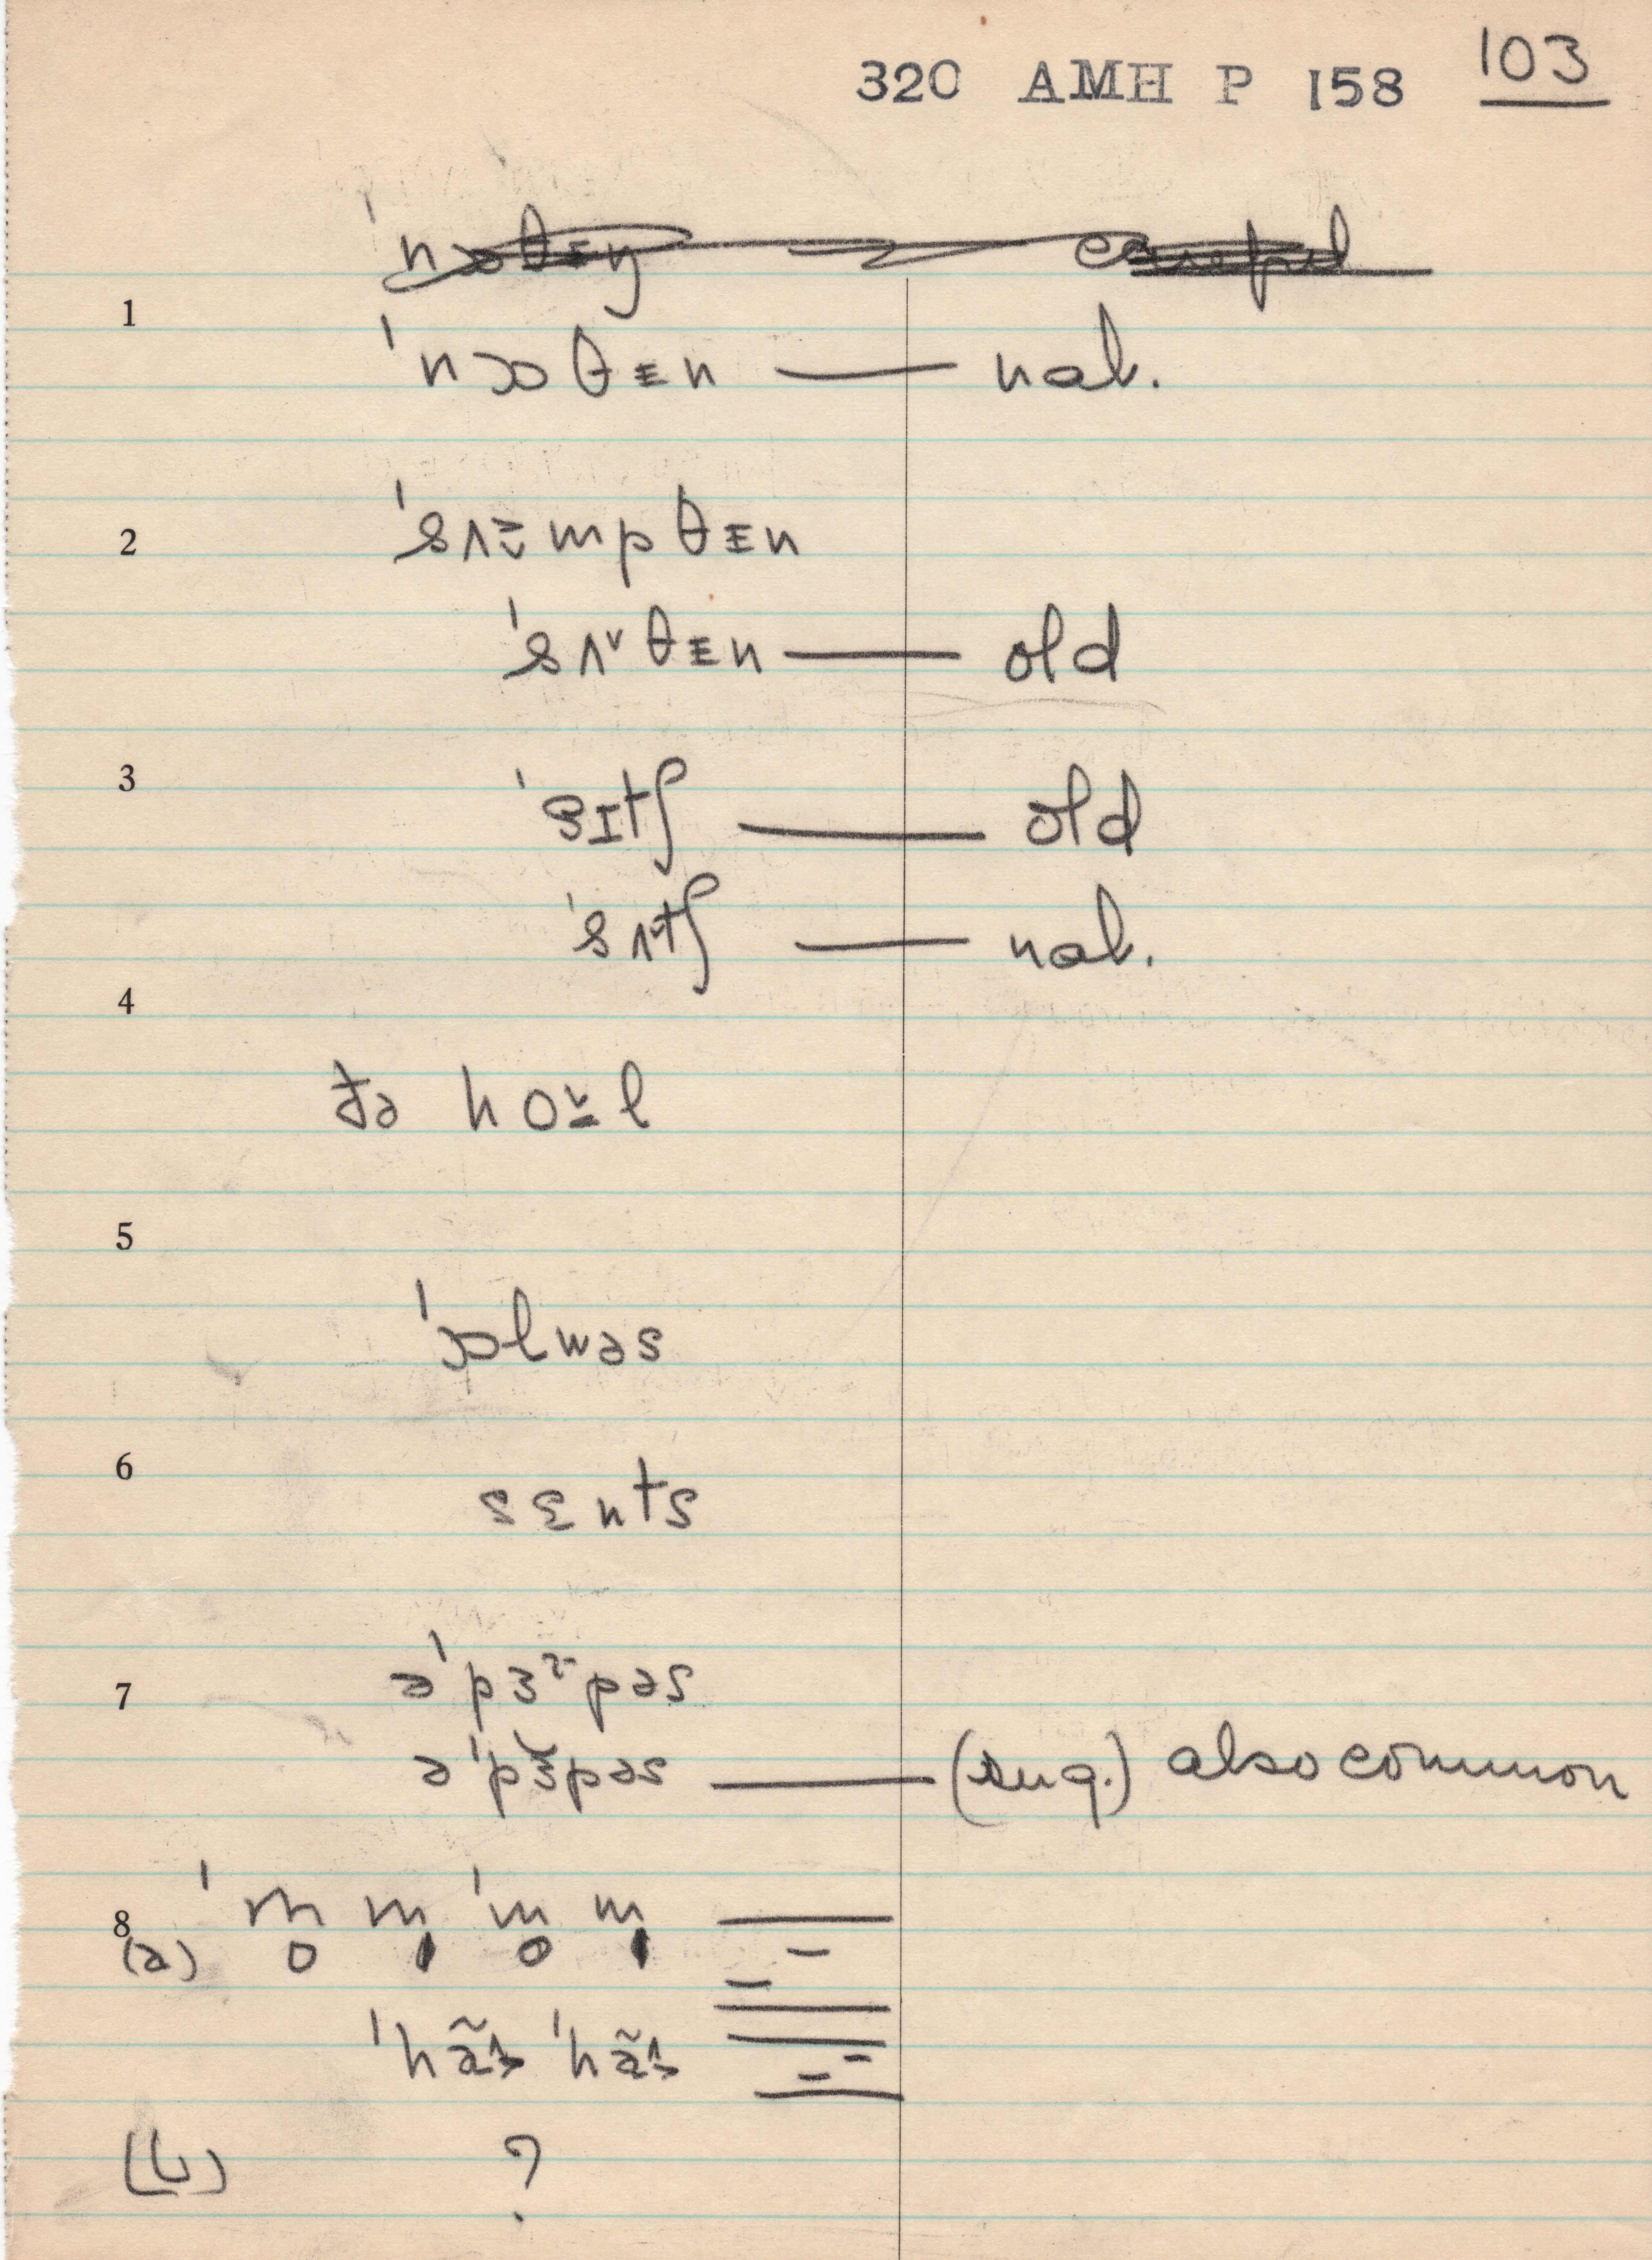 320 AMH P 158 103
1
ˈnɔθɪn — nat.
2
ˈsʌmpθɪn
ˈsʌθɪn — old
3
ˈsɪtʃ — old
ˈsʌtʃ — nat.
4
ðə hol
5
ˈɔlwəs
6
sɛnts
7
əˈpɜpəs
əˈpɜpəs — (sug.) also common
8
(a) ˈm̥ m̩ ˈm̥ m̩
ˈhə̃ ˈhə̃
(b) ?